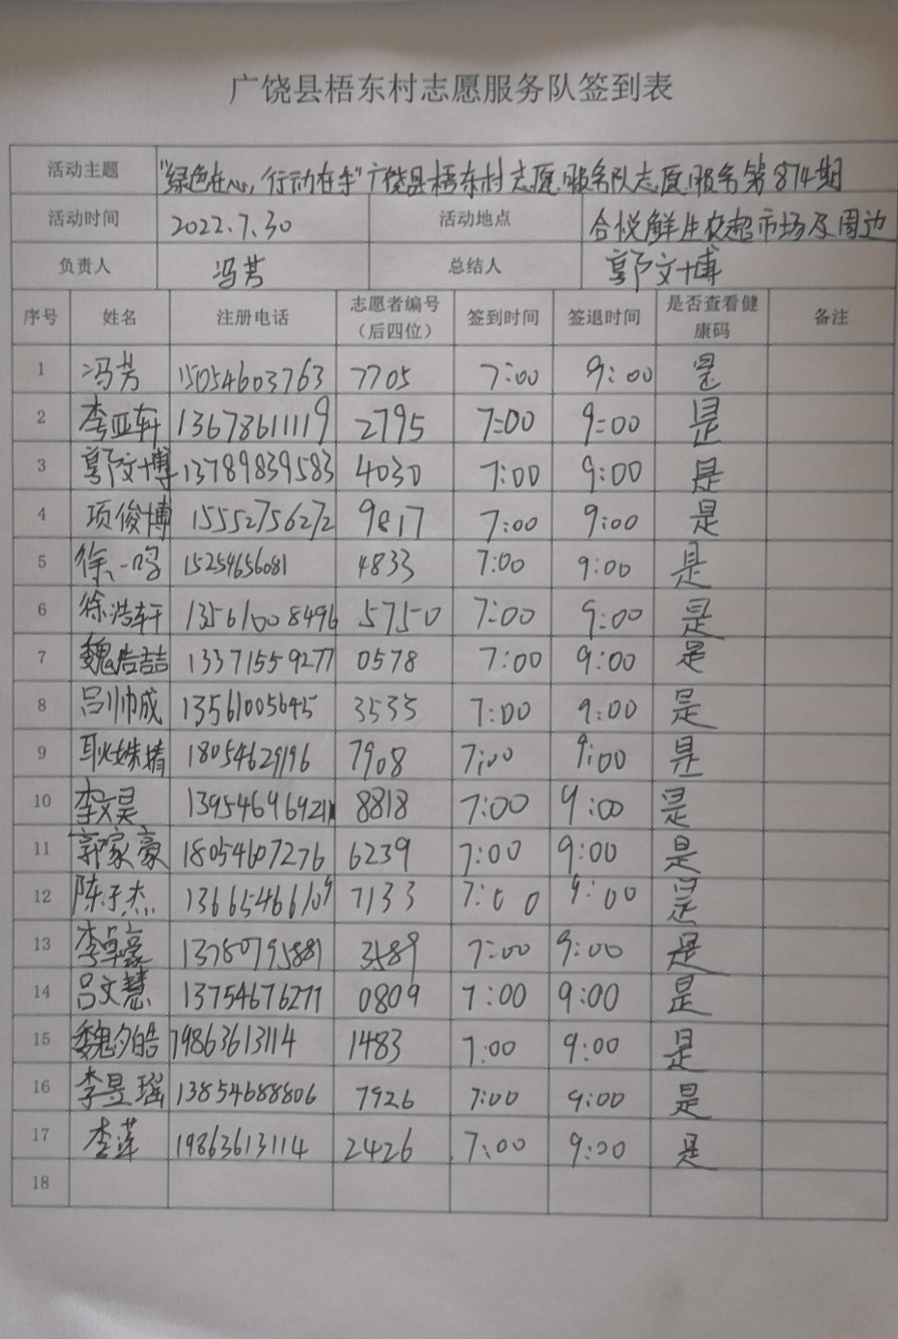 广饶县梧东村志愿服务队签到表
活动主题 "绿色在心,行动在手"广饶县梧东村志愿服务队志愿服务第874期
活动时间 2022.7.30 活动地点 合悦鲜生农超市场及周边
负责人 冯芳 总结人 郭文博
序号 姓名 注册电话 志愿者编号(后四位) 签到时间 签退时间 是否查看健康码 备注
1 冯芳 15054603763 7705 7:00 9:00 是
2 李亚轩 13678611119 2795 7:00 9:00 是
3 郭文博 13789839583 4030 7:00 9:00 是
4 项俊博 15552756272 9817 7:00 9:00 是
5 徐一鸣 15254656081 4833 7:00 9:00 是
6 徐浩轩 13561008496 5750 7:00 9:00 是
7 魏浩喆 13371559277 0578 7:00 9:00 是
8 吕帅成 13561005645 3535 7:00 9:00 是
9 耿姝婧 18054629196 7908 7:00 9:00 是
10 李文昊 13954696921 8818 7:00 9:00 是
11 郭家豪 18054607276 6239 7:00 9:00 是
12 陈子杰 13665466109 7133 7:00 9:00 是
13 李卓豪 13780795881 3589 7:00 9:00 是
14 吕文慧 13754676277 0809 7:00 9:00 是
15 魏夕皓 19863613114 1483 7:00 9:00 是
16 李昱瑶 13854688806 7926 7:00 9:00 是
17 李莲 19863613114 2426 7:00 9:00 是
18